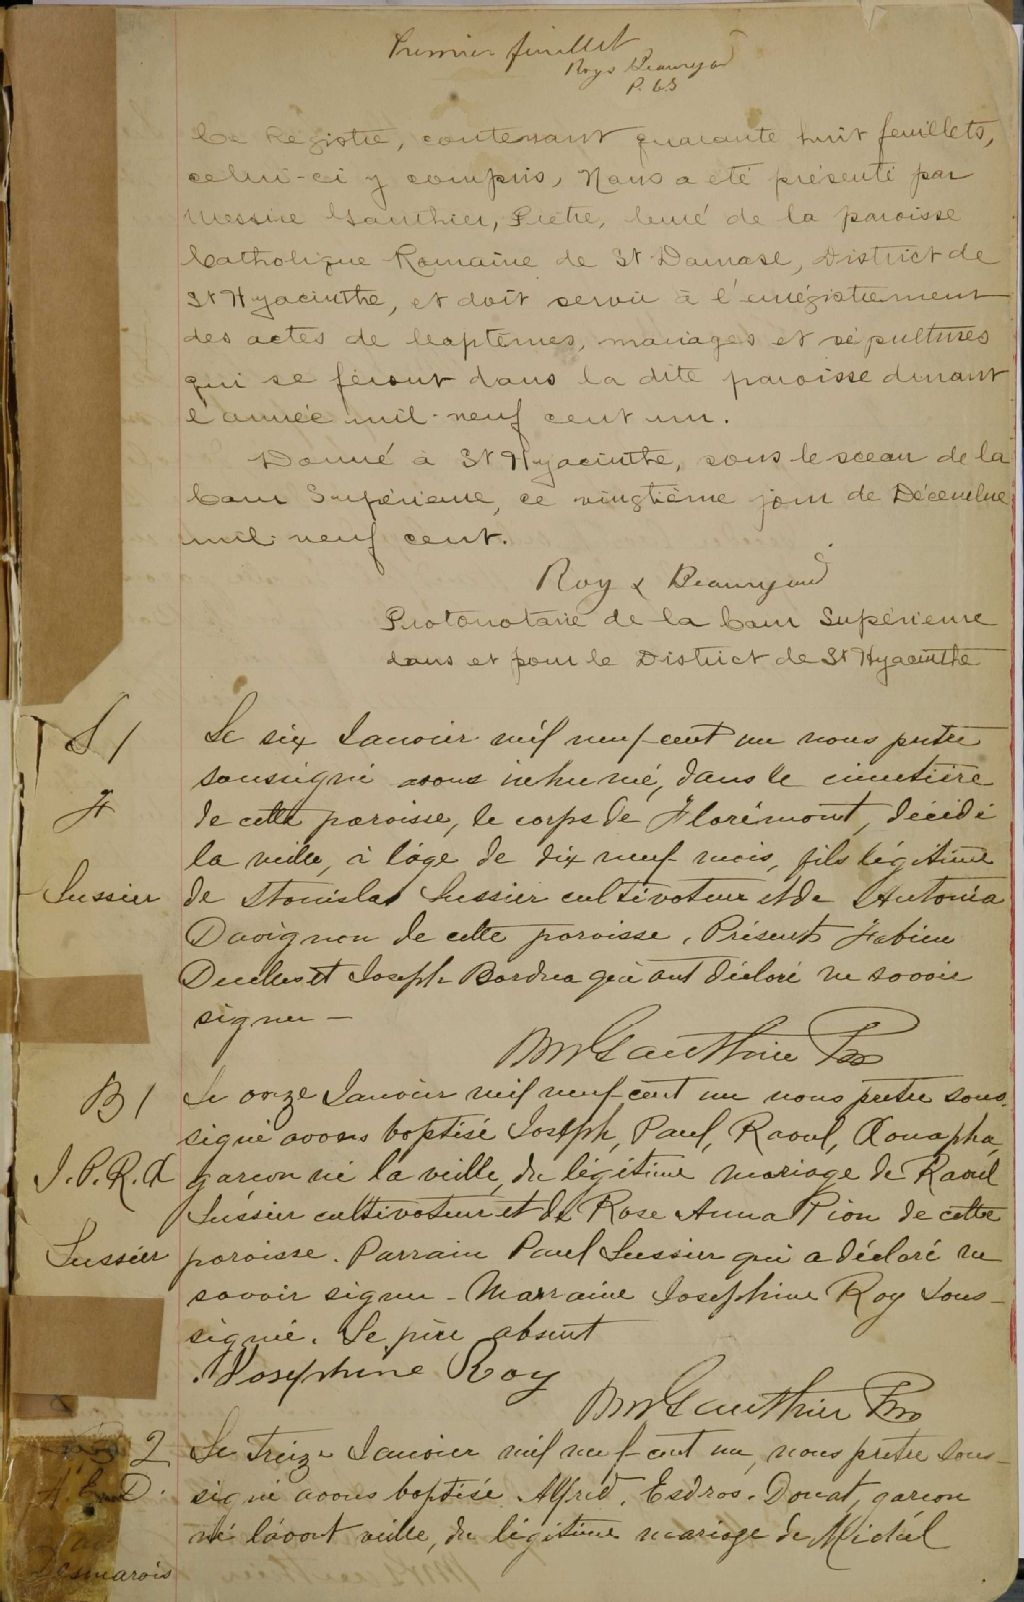 Premier feuillet
Roy & Beauregard
P. C. S
Ce Registre, contenant quarante huit feuillets,
celui-ci y compris, Nous a été présenté par
Messire Gauthier, Prêtre, Curé de la paroisse
Catholique Romaine de St Damase, District de
St Hyacinthe, et doit servir à l'enrégistrement
des actes de baptêmes, mariages et sépultures
qui se feront dans la dite paroisse durant
l'année mil neuf cent un.
Donné à St Hyacinthe, sous le sceau de la
Cour Supérieure, ce vingtième jour de Décembre
mil neuf cent.
Roy & Beauregard
Protonotaire de la Cour Supérieure
dans et pour le District de St Hyacinthe
S 1
F
Lussier
Le six Janvier mil neuf cent un nous prêtre
soussigné avons inhumé, dans le cimetière
de cette paroisse, le corps de Florémont, décédé
la veille, à l'âge de dix neuf mois, fils légitime
de Stanislas Lussier cultivateur et de Antonia
Davignon de cette paroisse. Présents Fabien
Decelles et Joseph Bardua qui ont déclaré ne savoir
signer —
Gauthier Ptre
B 1
J. P. R. A
Lussier
Le onze Janvier mil neuf cent un nous prêtre sous-
signé avons baptisé Joseph, Paul, Raoul,
garçon né la veille, du légitime mariage de Raoul
Lussier cultivateur et de Rose Anna Pion de cette
paroisse. Parrain Paul Lussier qui a déclaré ne
savoir signer - Marraine Josephine Roy sous-
signée. Le père absent
Josephine Roy
Gauthier Ptre
2
A. E. D.
Desmarais
Le treize Janvier mil neuf cent un, nous prêtre sous-
signé avons baptisé Alfred, Esdras, Donat, garçon
né l'avant veille, du légitime mariage de Michel